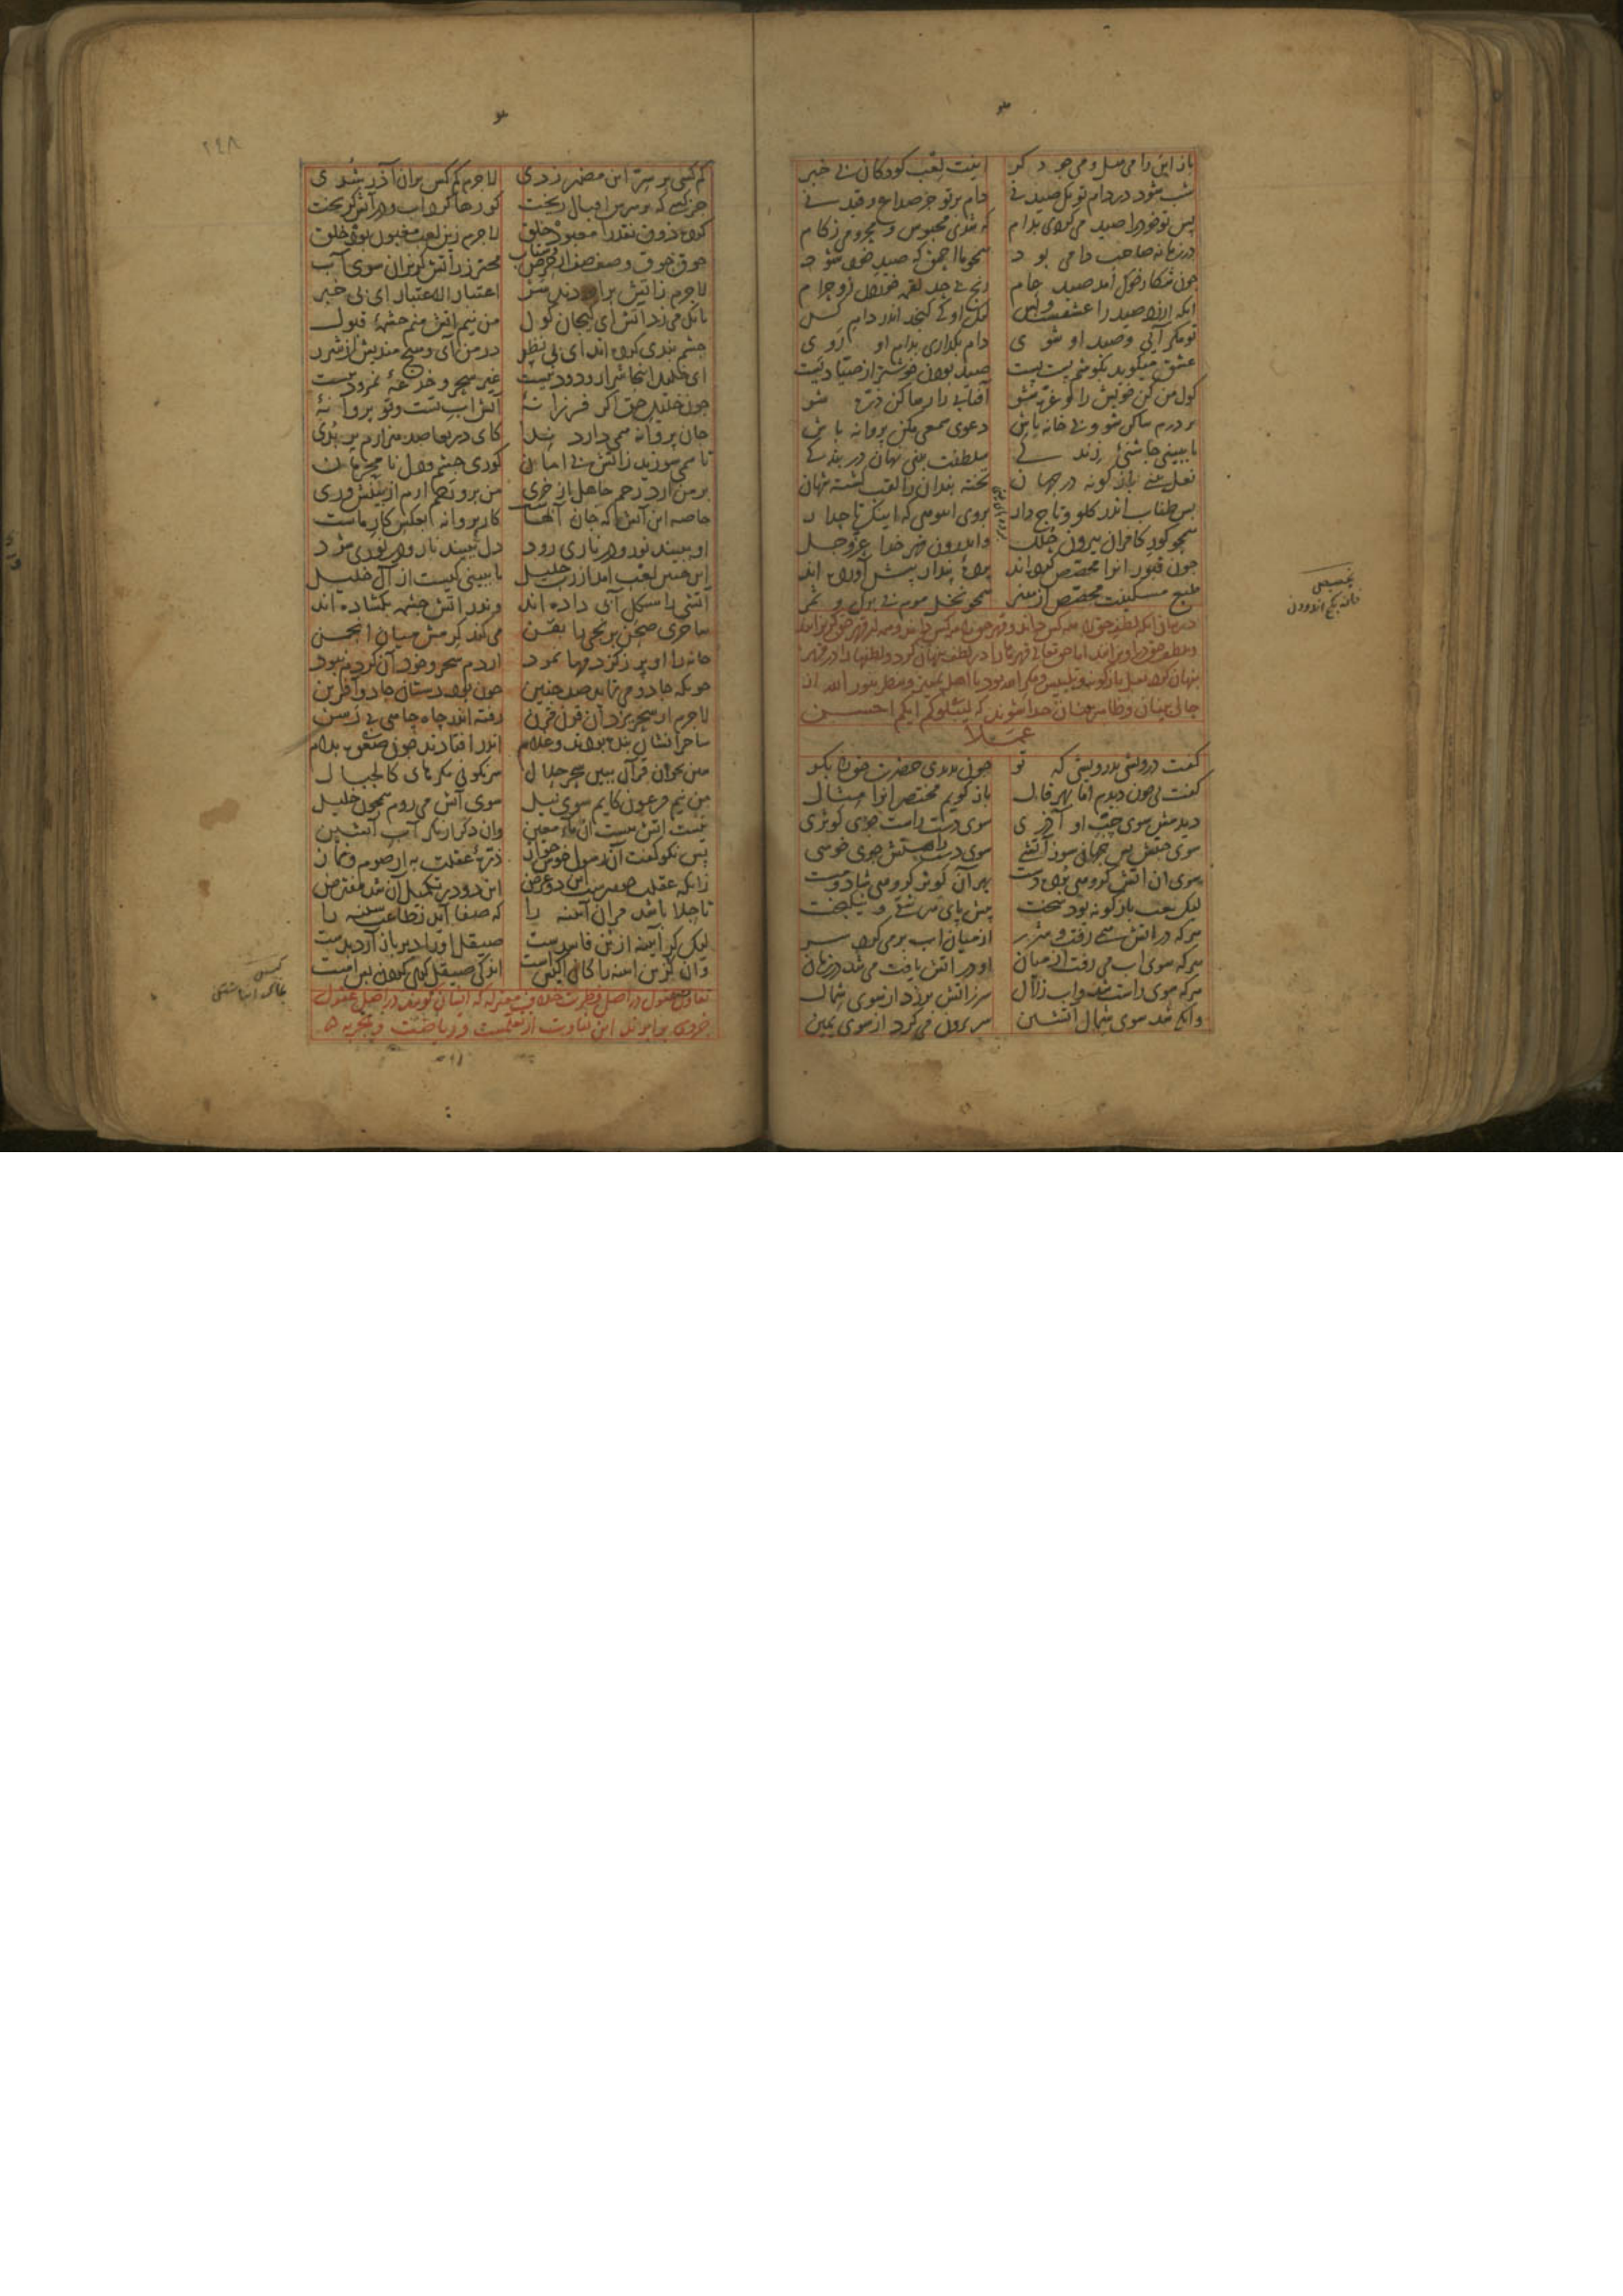 باز این را می هل و می جو دگر اینت لعب کودکان بی خبر
شب شود در دام تو یک صید نی دام بر تو جز صداع و قید نی
پس تو خود را صید می کردی بدام که شدی محبوس و محرومی ز کام
در زمانه صاحب دامی بود همچو ما احمق که صید خود شود
چون شکار خوک آمد صید عام رنج بی حد لقمه خوردن زو حرام
آنکه ارزد صید را عشقست و بس لیک او کی گنجد اندر دام کس
تو مگر آیی و صید او شوی دام بگذاری بدام او روی
عشق میگوید بگوشم پست پست صید بودن خوشتر از صیادیست
گول من کن خویش را و غره شو آفتابی را رها کن ذره شو
بر درم ساکن شو و بی خانه باش دعوی شمعی مکن پروانه باش
تا ببینی چاشنی زندگی سلطنت بینی نهان در بندگی
نعل بینی بازگونه در جهان تخته بندان را لقب گشته شهان
بس طناب اندر گلو و تاج دار بر وی انبوهی که اینک تاجدار
همچو گور کافران بیرون حلل واندرون قهر خدا عز و جل
چون قبور آنرا مجصص کرده اند پرده پندار پیش آورده اند
طبع مسکینت مجصص از هنر همچو نخل موم بی برگ و ثمر
در بیان آنکه لطف حق را همه کس داند و قهر حق را همه کس داند و همه از قهر حق گریزانند
و بلطف حق در آویزانند اما حق تعالی قهرها را در لطف پنهان کرد و لطفها را در قهر
پنهان کرد نعل بازگونه و تلبیس و مکر الله بود تا اهل تمییز و ینظر بنور الله از
حالی بینان و ظاهر بینان جدا شوند که لیبلوکم ایکم احسن
عملا
گفت درویشی بدرویشی که تو چون بدیدی حضرت حق را بگو
گفت بی چون دیدم اما بهر قال بازگویم مختصر آنرا مثال
دیدمش سوی چپ او آذری سوی دست راست جوی کوثری
سوی چپش بس جهان سوز آتشی سوی دست راستش جوی خوشی
سوی آن آتش گروهی برده دست بهر آن کوثر گروهی شاد و مست
لیک لعب بازگونه بود سخت پیش پای هر شقی و نیکبخت
هر که در آتش همی رفت و شرر از میان آب بر می کرد سر
هر که سوی آب می رفت از میان او در آتش یافت می شد در زمان
هر که سوی راست شد و آب زلال سر ز آتش بر زد از سوی شمال
وانکه شد سوی شمال آتشین سر برون می کرد از سوی یمین
تجصیص
خانه بگچ اندودن
٢٤٨
کم کسی بر سر این مضمر زدی لاجرم کم کس بر آن آذر شدی
جز کسی که بر سرش اقبال ریخت کو رها کرد آب و در آتش گریخت
کرده ذوق نقد را معبود خلق لاجرم زین لعب مغبون بود خلق
جوق جوق و صف صف از حرص و شتاب محترز ز آتش گریزان سوی آب
لاجرم ز آتش بر آوردند سر اعتبار الاعتبار ای بی خبر
بانگ می زد آتش ای گیجان گول من نیم آتش منم چشمه قبول
چشم بندی کرده اند ای بی نظر در من آی و هیچ مندیش از شرر
ای خلیل اینجا شرار و دود نیست غیر سحر و خدعه نمرود نیست
چون خلیل حق اگر فرزانه آتش آب تست و تو پروانه
جان پروانه همی دارد ندا کای دریغا صد هزارم پر بدی
تا همی سوزید ز آتش بی امان کوری چشم و دل نامحرمان
بر من آرد رحم جاهل از خری من برو رحم آرم از بینش وری
خاصه این آتش که جان آبهاست کار پروانه بعکس کار ماست
او ببیند نور و در ناری رود دل ببیند نار و در نوری شود
این چنین لعب آمد از رب جلیل تا ببینی کیست از آل خلیل
آتشی را شکل آبی داده اند و اندر آتش چشمه بگشاده اند
ساحری صحن برنجی را بفن می کند کرمش میان انجمن
خانه را او پر ز کژدمها نمود از دم سحر و خود آن کژدم نبود
چونکه جادو می نماید صد چنین چون بود دستان جادو آفرین
لاجرم از سحر یزدان قرن قرن رفته اندر چاه جاهی بی رسن
ساحرانشان بنده بودند و غلام اندر افتادند چون صعوه بدام
هین بخوان قرآن ببین سحر حلال سرنگونی مکرهای کالجبال
من نیم فرعون کایم سوی نیل سوی آتش می روم همچون خلیل
نیست آتش هست آن ماء معین وان دگر از مکر آب آتشین
پس نکو گفت آن رسول خوش جواز ذره عقلت به از صوم و نماز
زانکه عقلت جوهرست این دو عرض این دو در تکمیل آن شد مفترض
تا جلا باشد مر آن آینه را که صفا آید ز طاعت سینه را
لیک گر آیینه از بن فاسدست صیقل او را دیر باز آرد بدست
وان گزین آینه را اندکی صیقل گری
تفاوت عقول در اصل فطرت خلاف معتزله که ایشان گویند در اصل عقول
جزوی برابرند این تفاوت از تعلمست و ریاضت و تجربه